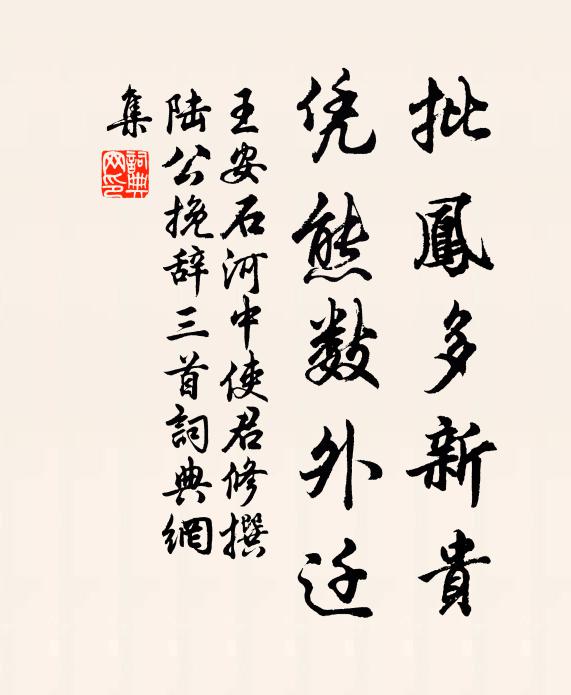 批鳳多新貴
凭熊数外迁
王安石河中使君修撰
陆公挽辞三首詞典網
集
詞典網印